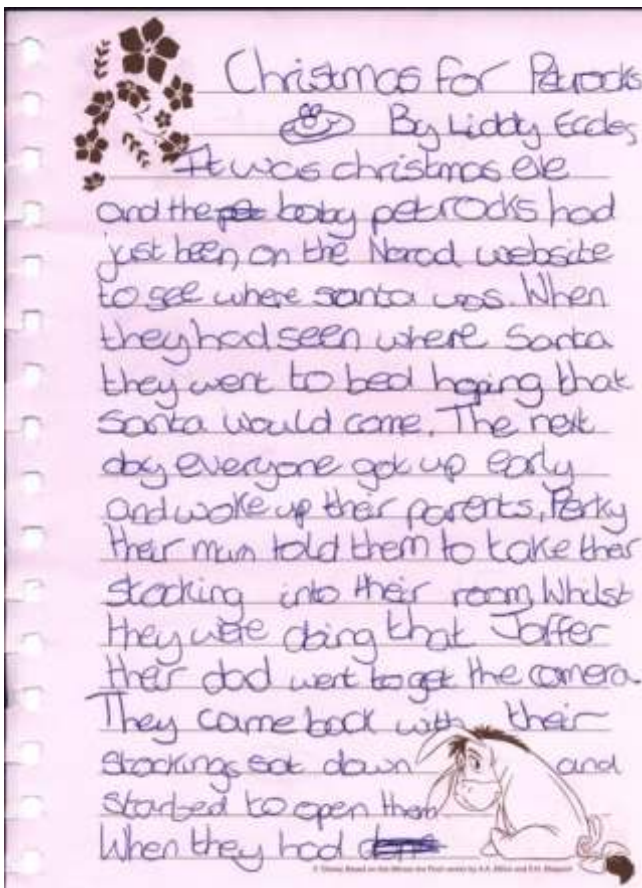 Christmas for Petrocks
By Liddy Eccles
It was christmas eve
and the baby petrocks had
just been on the Norad website
to see where santa was. When
they had seen where Santa
they went to bed hoping that
santa would come. The next
day everyone got up early
and woke up their parents, Perky
their mum told them to take their
stocking into their room. Whilst
they were doing that Jaffer
their dad went to get the camera
They came back with their
stockings sat down and
started to open them
When they had